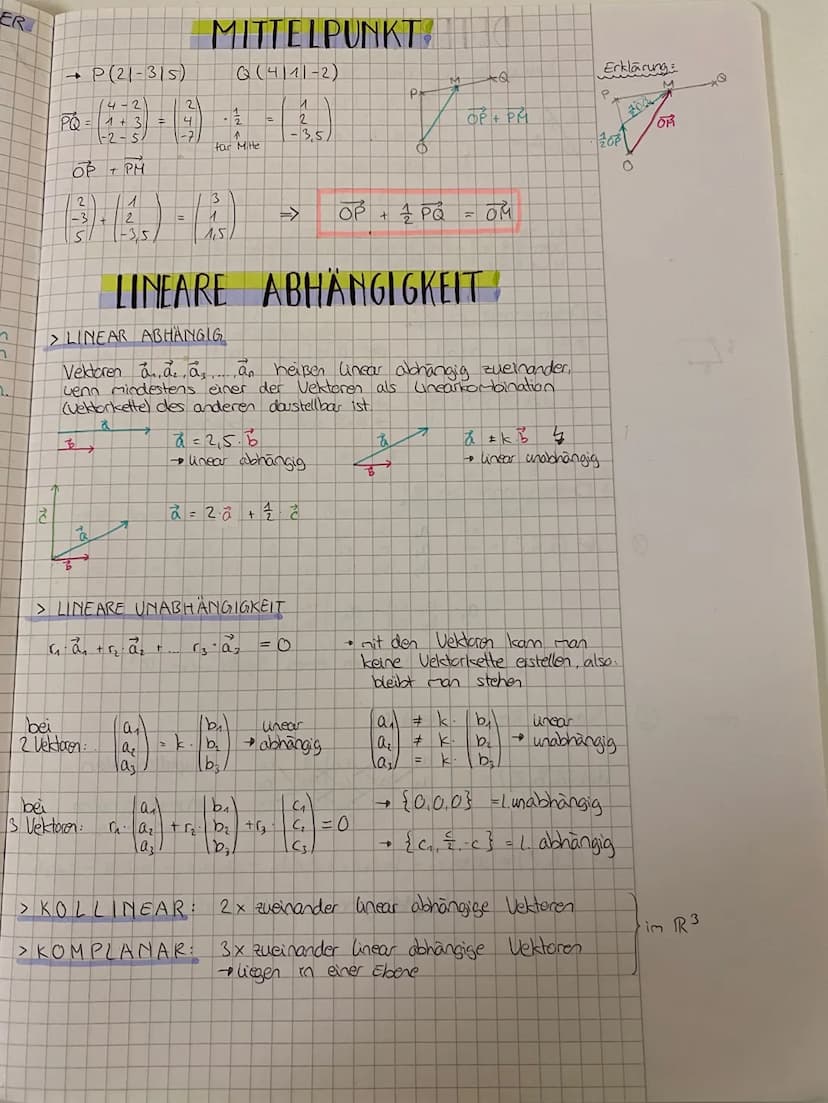 ER
MITTELPUNKT!
→ P(2|-3|5) Q(4|1|-2)
P M Q
O
OP⃗ + PM⃗
Erklärung:
P M Q
½PQ⃗
½OP⃗ OM⃗
O
PQ⃗ = (4-2 / 1+3 / -2-5) = (2 / 4 / -7) · ½ = (1 / 2 / -3,5)
↑ für Mitte
OP⃗ + PM⃗
(2 / -3 / 5) + (1 / 2 / -3,5) = (3 / 1 / 1,5) ⇒ OP⃗ + ½ PQ⃗ = OM⃗
LINEARE ABHÄNGIGKEIT!
> LINEAR ABHÄNGIG
Vektoren a⃗₁, a⃗₂, a⃗₃, ..., a⃗n heißen linear abhängig zueinander,
wenn mindestens einer der Vektoren als Linearkombination
(Vektorkette) des anderen darstellbar ist
a⃗
b⃗
a⃗ = 2,5 · b⃗
→ linear abhängig
a⃗
b⃗
a⃗ ≠ k · b⃗ ↯
→ linear unabhängig
c⃗
a⃗
b⃗
a⃗ = 2 · a⃗ + ½ · c⃗
> LINEARE UNABHÄNGIGKEIT
r₁ · a⃗₁ + r₂ · a⃗₂ + ... r₃ · a⃗₃ = 0
→ mit den Vektoren kann man
keine Vektorkette erstellen, also
bleibt man stehen
bei
2 Vektoren: (a₁ / a₂ / a₃) = k · (b₁ / b₂ / b₃) → linear abhängig
(a₁ / a₂ / a₃) ≠ k · / ≠ k · / = k · (b₁ / b₂ / b₃) → linear unabhängig
bei
3 Vektoren: r₁ · (a₁ / a₂ / a₃) + r₂ · (b₁ / b₂ / b₃) + r₃ · (c₁ / c₂ / c₃) = 0
→ {0,0,0} = l. unabhängig
→ {c, c/2, -c} = l. abhängig
> KOLLINEAR: 2x zueinander linear abhängige Vektoren
> KOMPLANAR: 3x zueinander linear abhängige Vektoren
→ liegen in einer Ebene
im ℝ³